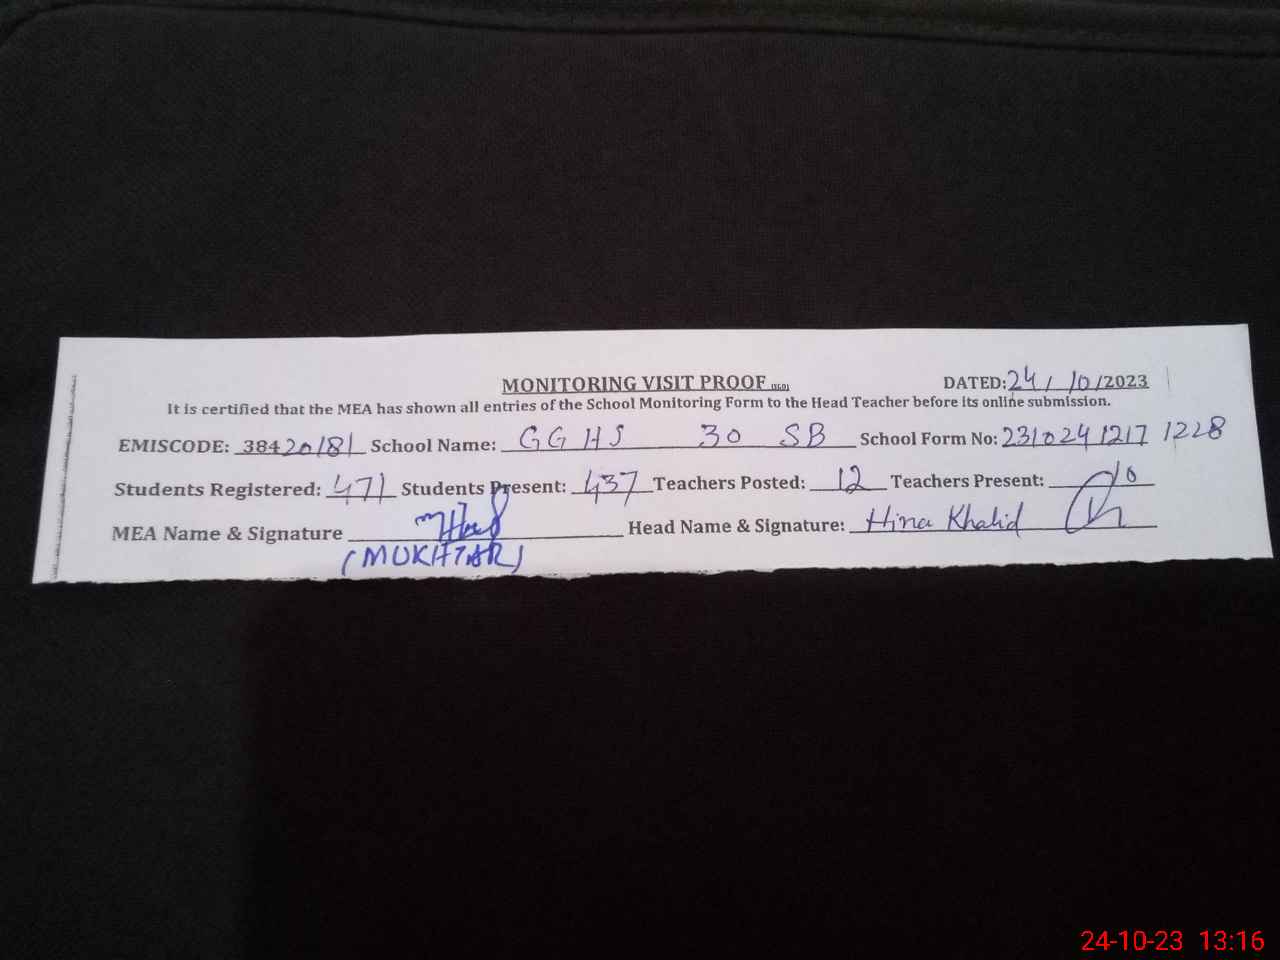 MONITORING VISIT PROOF
DATED: 24/10/2023
It is certified that the MEA has shown all entries of the School Monitoring Form to the Head Teacher before its online submission.
EMISCODE: 38420181 School Name: GGHS 30 SB School Form No: 231024 1217 1228
Students Registered: 471 Students Present: 437 Teachers Posted: 12 Teachers Present: 10
MEA Name & Signature Head Name & Signature: Hina Khalid
(MUKHTAR)
24-10-23 13:16